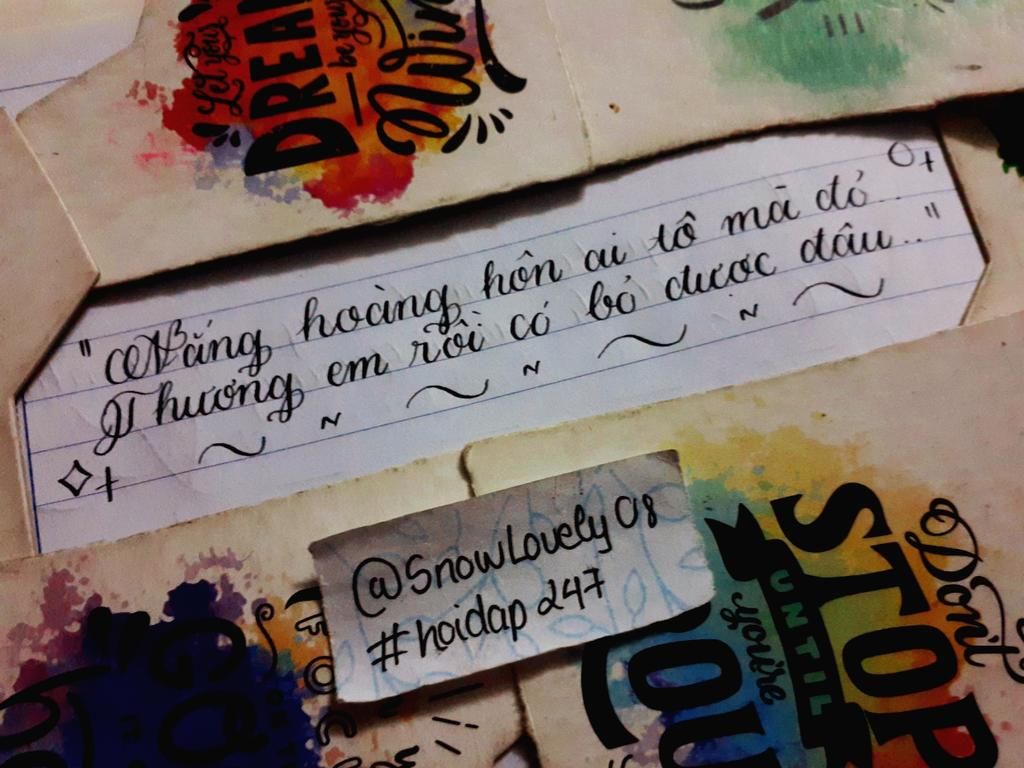 Let your
DREAM
be your
Win
"Nắng hoàng hôn ai tô mà đỏ
Thương em rồi có bỏ được đâu.. "
@SnowLovely08
#hoidap247
Don't
STOP
UNTIL
you're